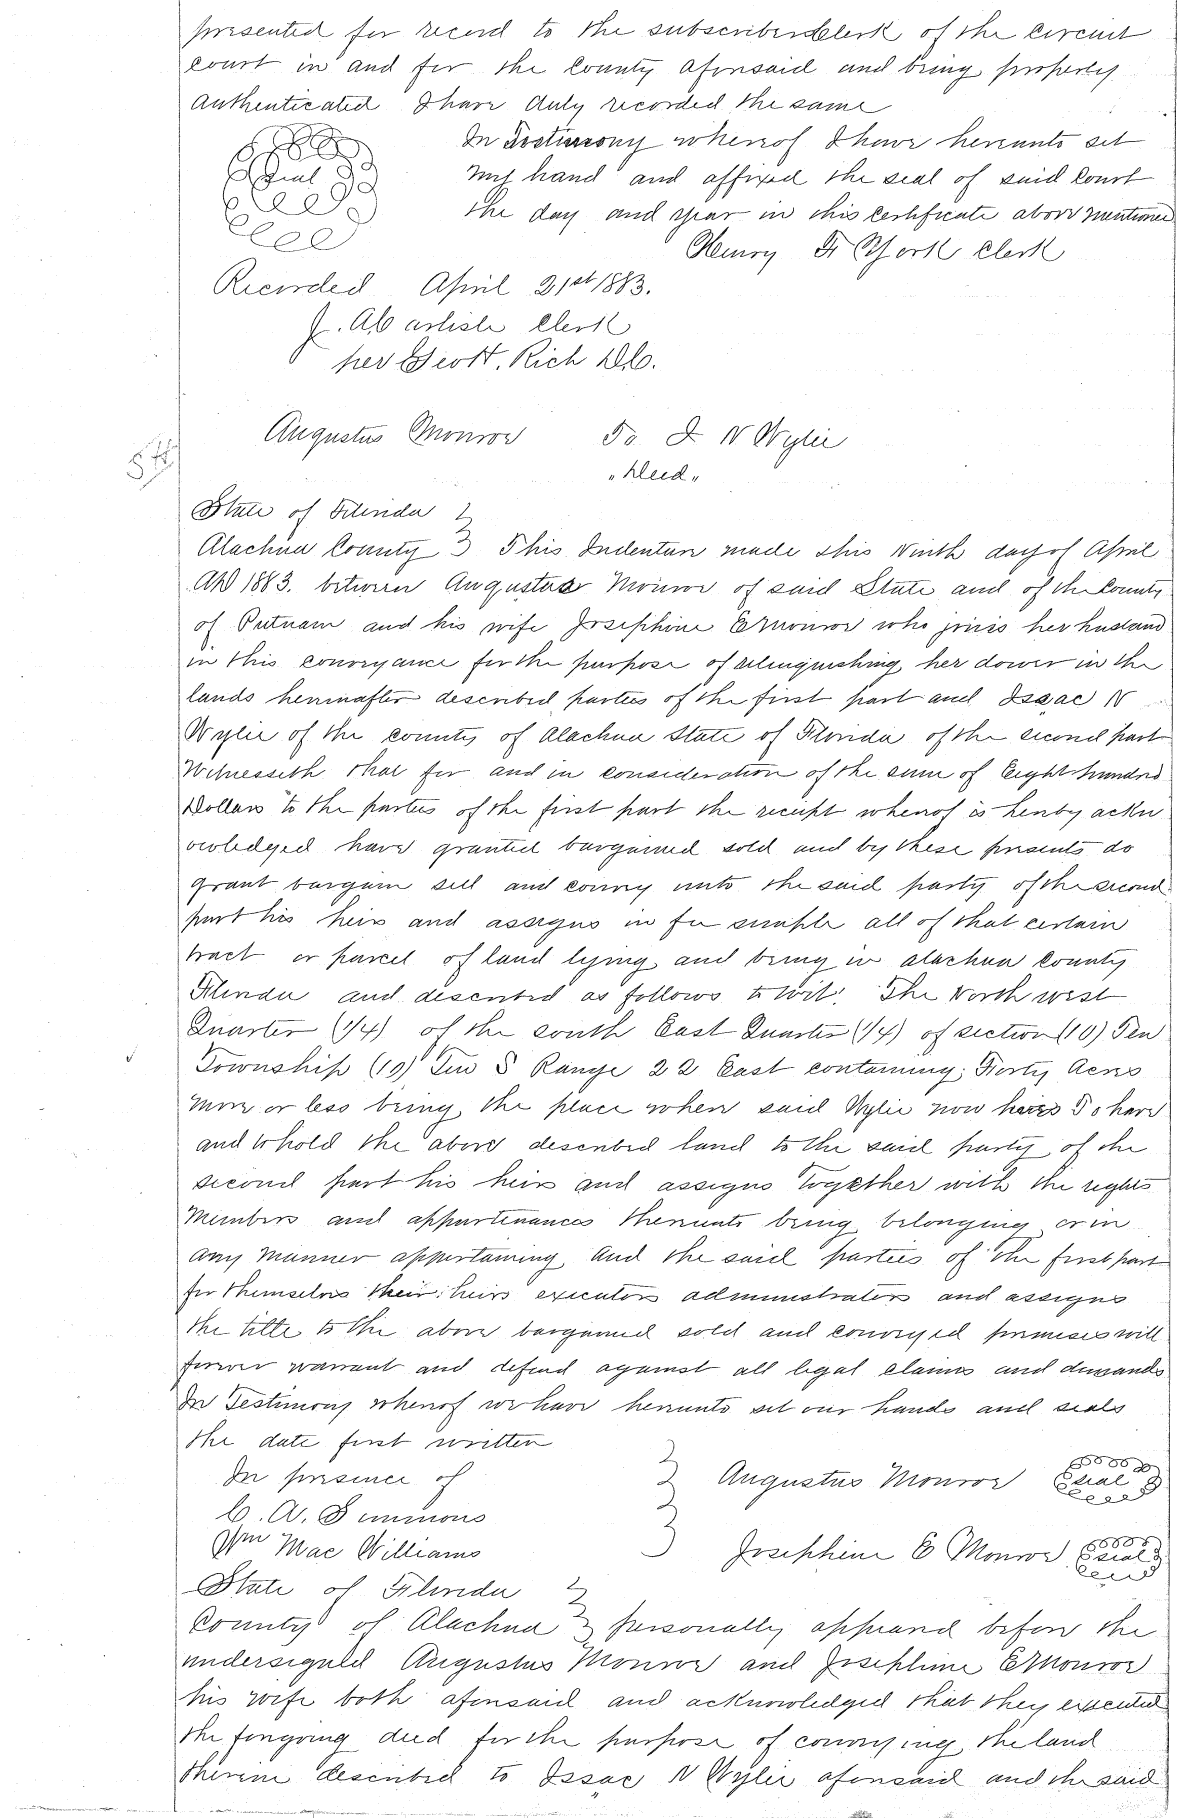 presented for record to the subscriber Clerk of the Circuit
Court in and for the County aforesaid and being properly
Authenticated I have duly recorded the same
In Testimony whereof I have hereunto set
my hand and affixed the seal of said Court
Seal
the day and year in this certificate above mentioned
Henry F York Clerk
Recorded April 21st 1883.
J. A. Carlisle Clerk
per Scott. Rich D.C.
Augustus Monroe To I N Wylie
"Deed"
State of Florida
Alachua County This Indenture made this Ninth day of April
AD 1883. between Augustus Monroe of said State and of the County
of Putnam and his wife Josephine E Monroe who joins her husband
in this conveyance for the purpose of relinquishing her dower in the
lands hereinafter described parties of the first part and Issac N
Wylie of the county of Alachua State of Florida of the second part
Witnesseth that for and in consideration of the sum of Eight hundred
Dollars to the parties of the first part the receipt whereof is hereby ackn
owledged have granted bargained sold and by these presents do
grant bargain sell and convey unto the said party of the second
part his heirs and assigns in fee simple all of that certain
tract or parcel of land lying and being in Alachua County
Florida and described as follows to wit: The North west
Quarter (1/4) of the South East Quarter (1/4) of section (10) Ten
Township (10) Ten S Range 22 East containing Forty Acres
more or less being the place where said Wylie now lives To have
and to hold the above described land to the said party of the
second part his heirs and assigns together with the rights
Members and appurtenances thereunto being belonging or in
any manner appertaining And the said parties of the first part
for themselves their heirs executors administrators and assigns
the title to the above bargained sold and conveyed premises will
forever warrant and defend against all legal claims and demands
In Testimony whereof we have hereunto set our hands and seals
the date first written
In presence of
Augustus Monroe Seal
C. A. Simmons
Wm Mac Williams
Josephine E Monroe Seal
State of Florida
County of Alachua personally appeared before the
undersigned Augustus Monroe and Josephine E Monroe
his wife both aforesaid and acknowledged that they executed
the foregoing deed for the purpose of conveying the land
therein described to Issac N Wylie aforesaid and the said